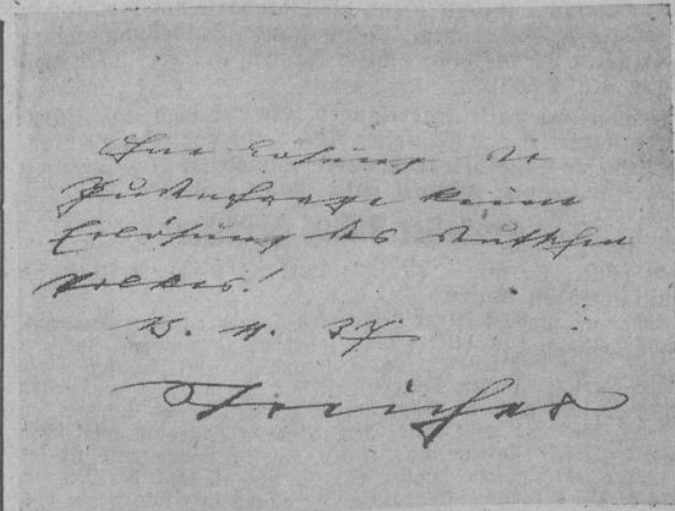 Ohne Lösung der
Judenfrage keine
Erlösung des deutschen
Volkes!
37
Streicher